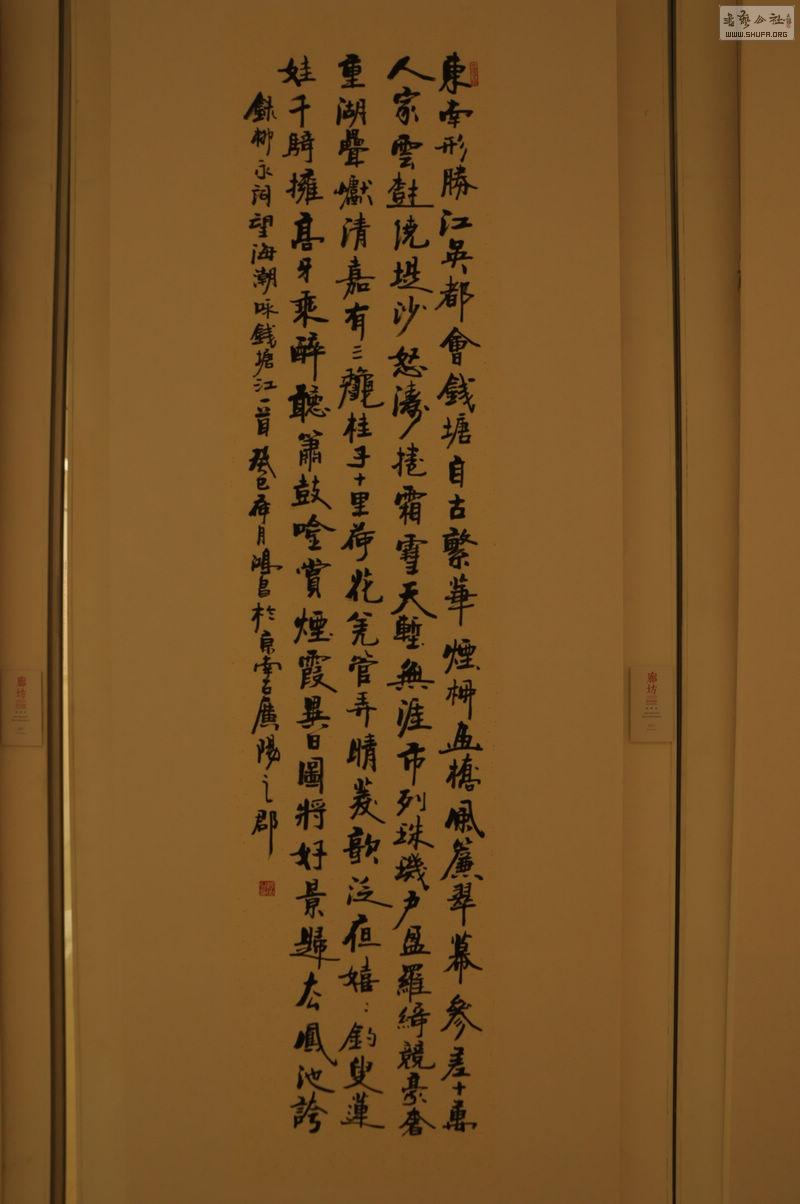 東南形勝江吳都會錢塘自古繁華煙柳畫橋風簾翠幕參差十萬
人家雲樹繞堤沙怒濤捲霜雪天塹無涯市列珠璣戶盈羅綺競豪奢
重湖疊巘清嘉有三龝桂子十里荷花羌管弄晴菱歌泛夜嬉〻釣叟蓮
娃千騎擁高牙乘醉聽簫鼓吟賞煙霞異日圖將好景歸去鳳池誇
錄柳永詞望海潮咏錢塘江一首癸巳春月鴻昌於京南古廣陽之郡
廊坊
廊坊
書藝公社
WWW.SHUFA.ORG